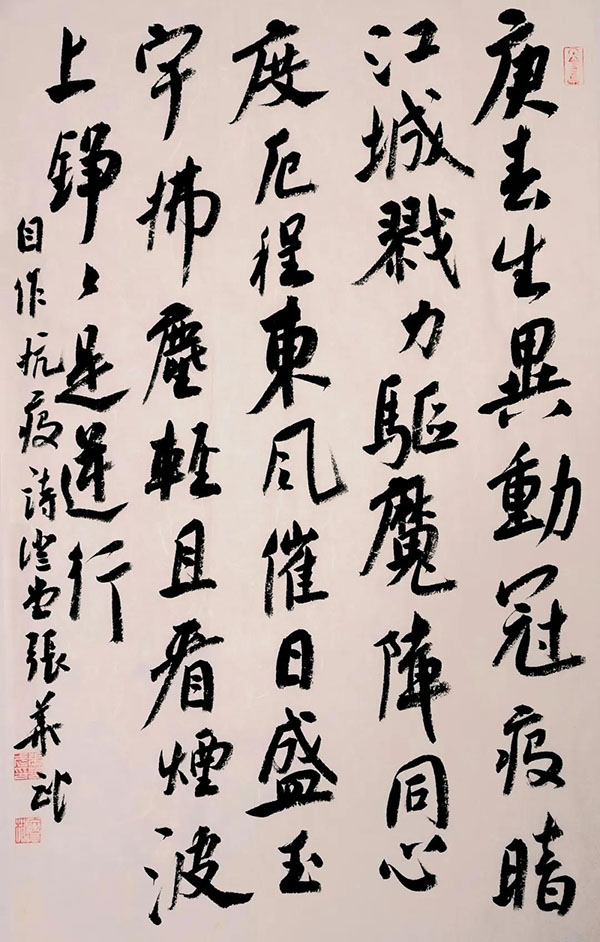 庚春生異動冠疫暗
江城戮力驅魔陣同心
度厄程東風催日盛玉
宇拂塵輕且看煙波
上錚〻是逆行
自作抗疫詩 張華